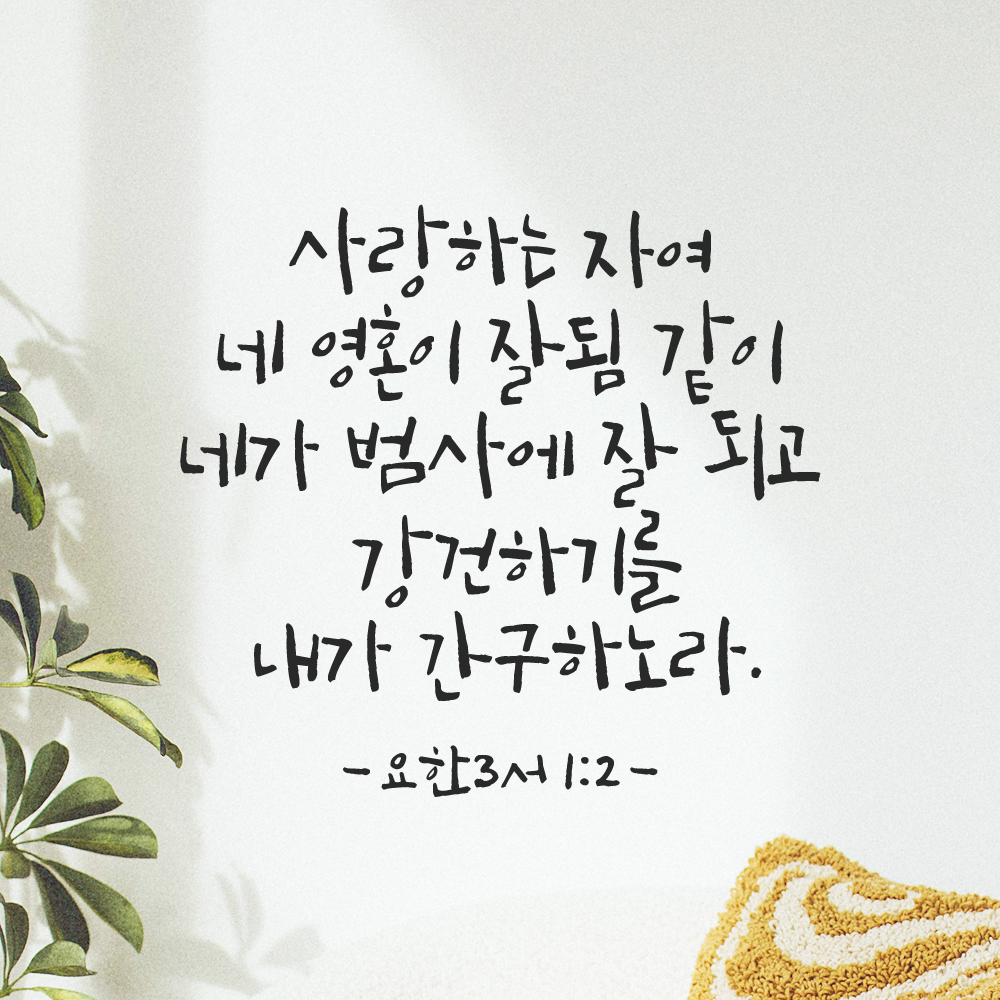 사랑하는 자여
네 영혼이 잘됨 같이
네가 범사에 잘 되고
강건하기를
내가 간구하노라.
-요한3서 1:2-